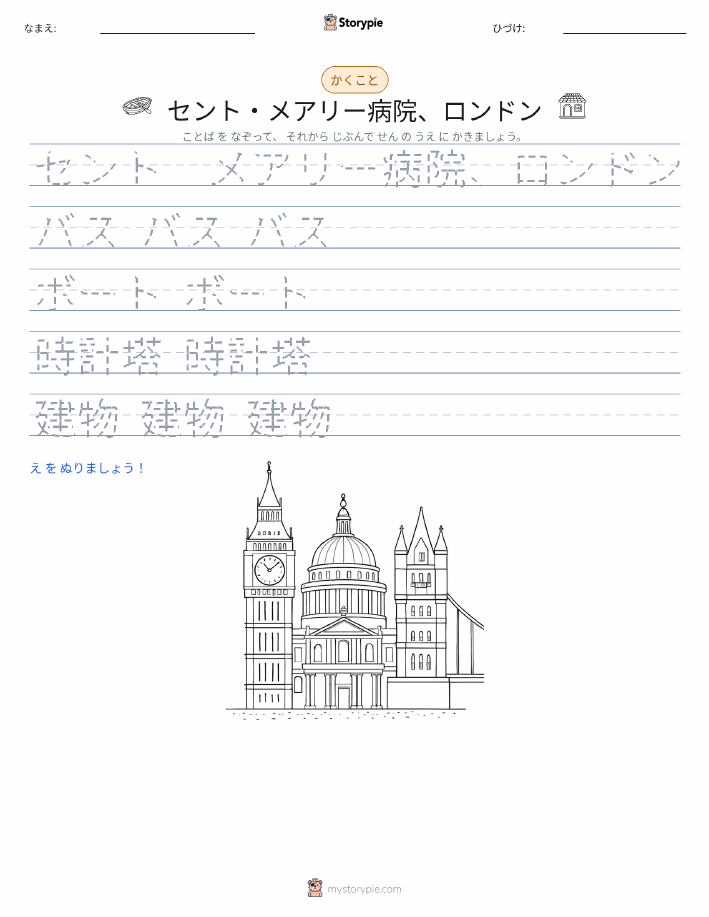 なまえ:
Storypie
ひづけ:
かくこと
セント・メアリー病院、ロンドン
ことば を なぞって、 それから じぶんで せん の うえ に かきましょう。
セント メアリー病院、ロンドン
バス バス バス
ボート ボート
時計塔 時計塔
建物 建物 建物
え を ぬりましょう！
mystorypie.com